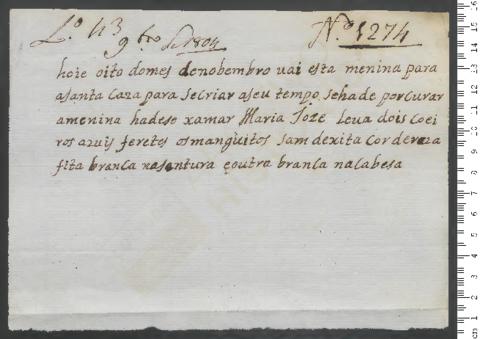 L.º 43 N.º 1274
9bro de 1804
hoie oito domes denobembro uai esta menina para
asanta caza para secriar aseu tempo sehade porcurar
amenina hadese xamar Maria Joze leua dois coei
ros azuis feretes osmanguitos sam dexita cor deroza
fita branca nasentura eoutra branca nacabesa
cm 1 2 3 4 5 6 7 8 9 10 11 12 13 14 15 16